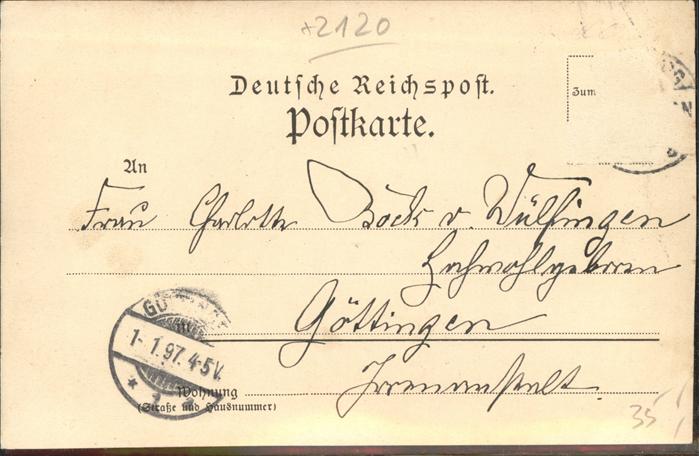 +2120
Deutsche Reichspost.
Postkarte.
Zum
An
Frau Charlotte Bock v. Wülfingen
Hochwohlgeboren
Göttingen
1. 1. 97. 4-5V.
Irrenanstalt
Wohnung
(Straße und Hausnummer)
35